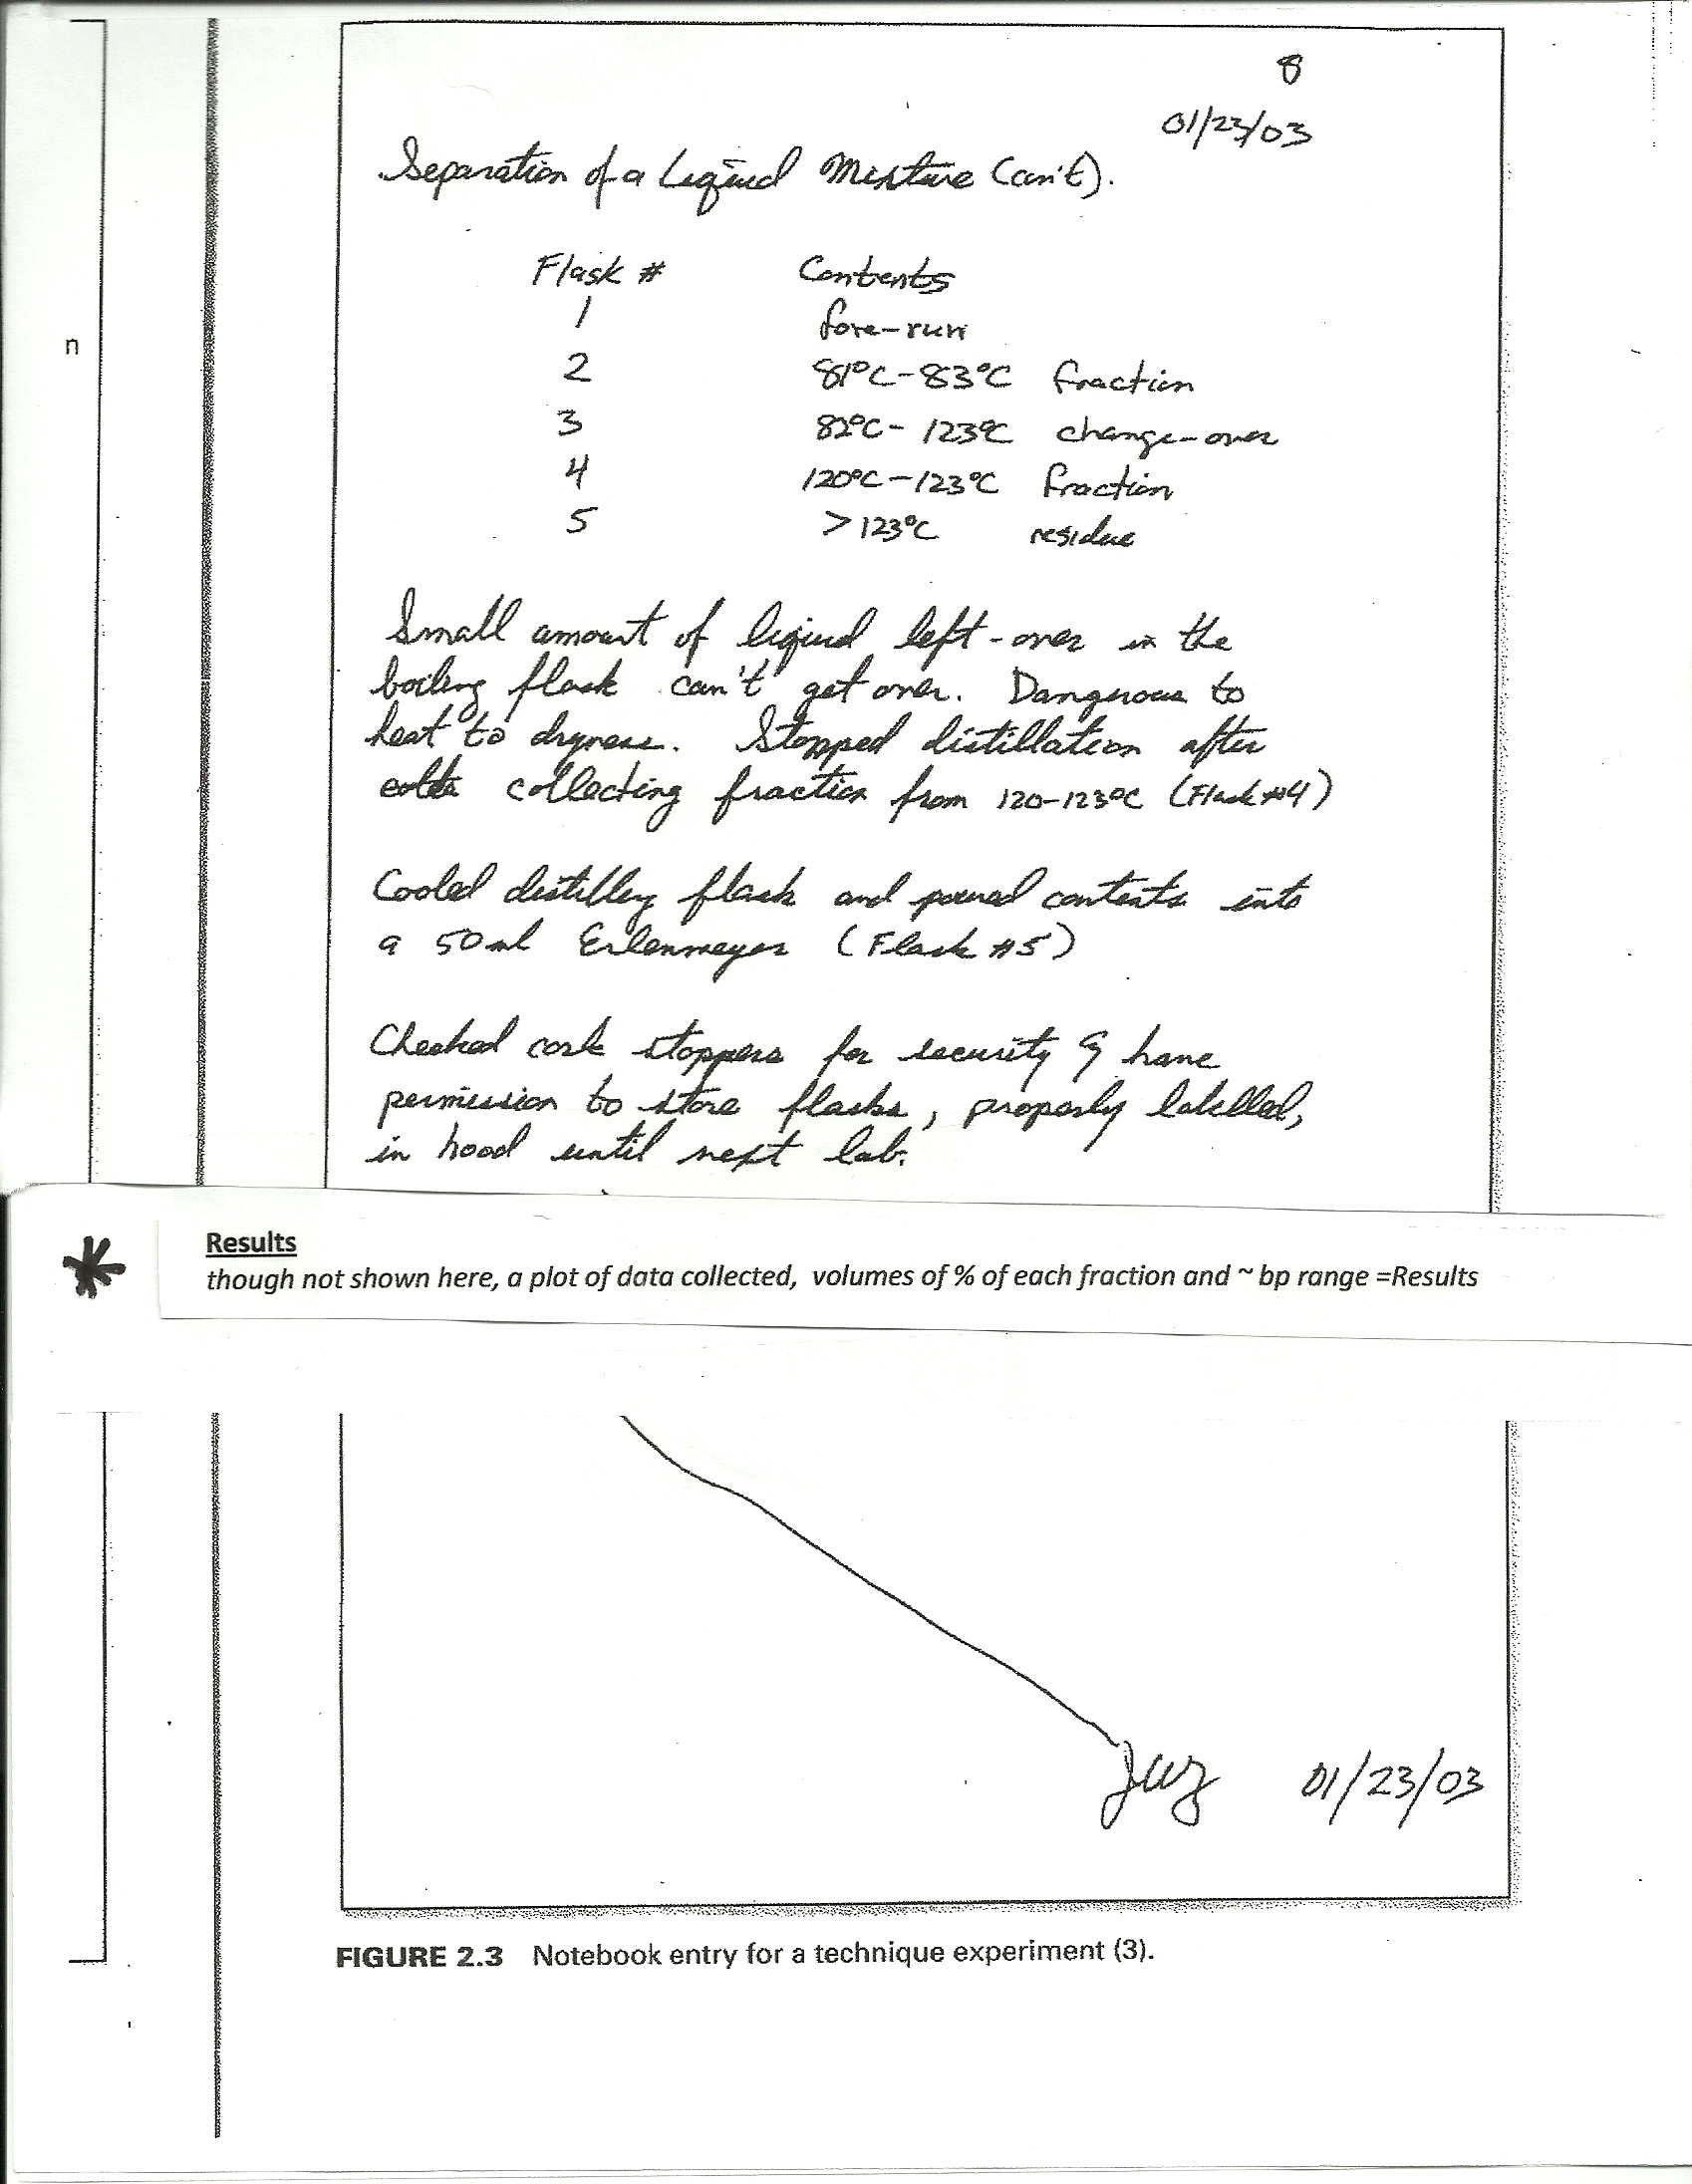 8
01/23/03
Separation of a Liquid Mixture (con't).
Flask # Contents
1 fore-run
2 81°C-83°C fraction
3 82°C-123°C change-over
4 120°C-123°C fraction
5 >123°C residue
Small amount of liquid left-over in the
boiling flask can't get over. Dangerous to
heat to dryness. Stopped distillation after
collecting fraction from 120-123°C (Flask #4)
Cooled distilling flask and poured contents into
a 50 ml Erlenmeyer (Flask #5)
Checked cork stoppers for security & have
permission to store flasks, properly labelled,
in hood until next lab.
n
* Results
though not shown here, a plot of data collected, volumes of % of each fraction and ~ bp range =Results
01/23/03
FIGURE 2.3 Notebook entry for a technique experiment (3).